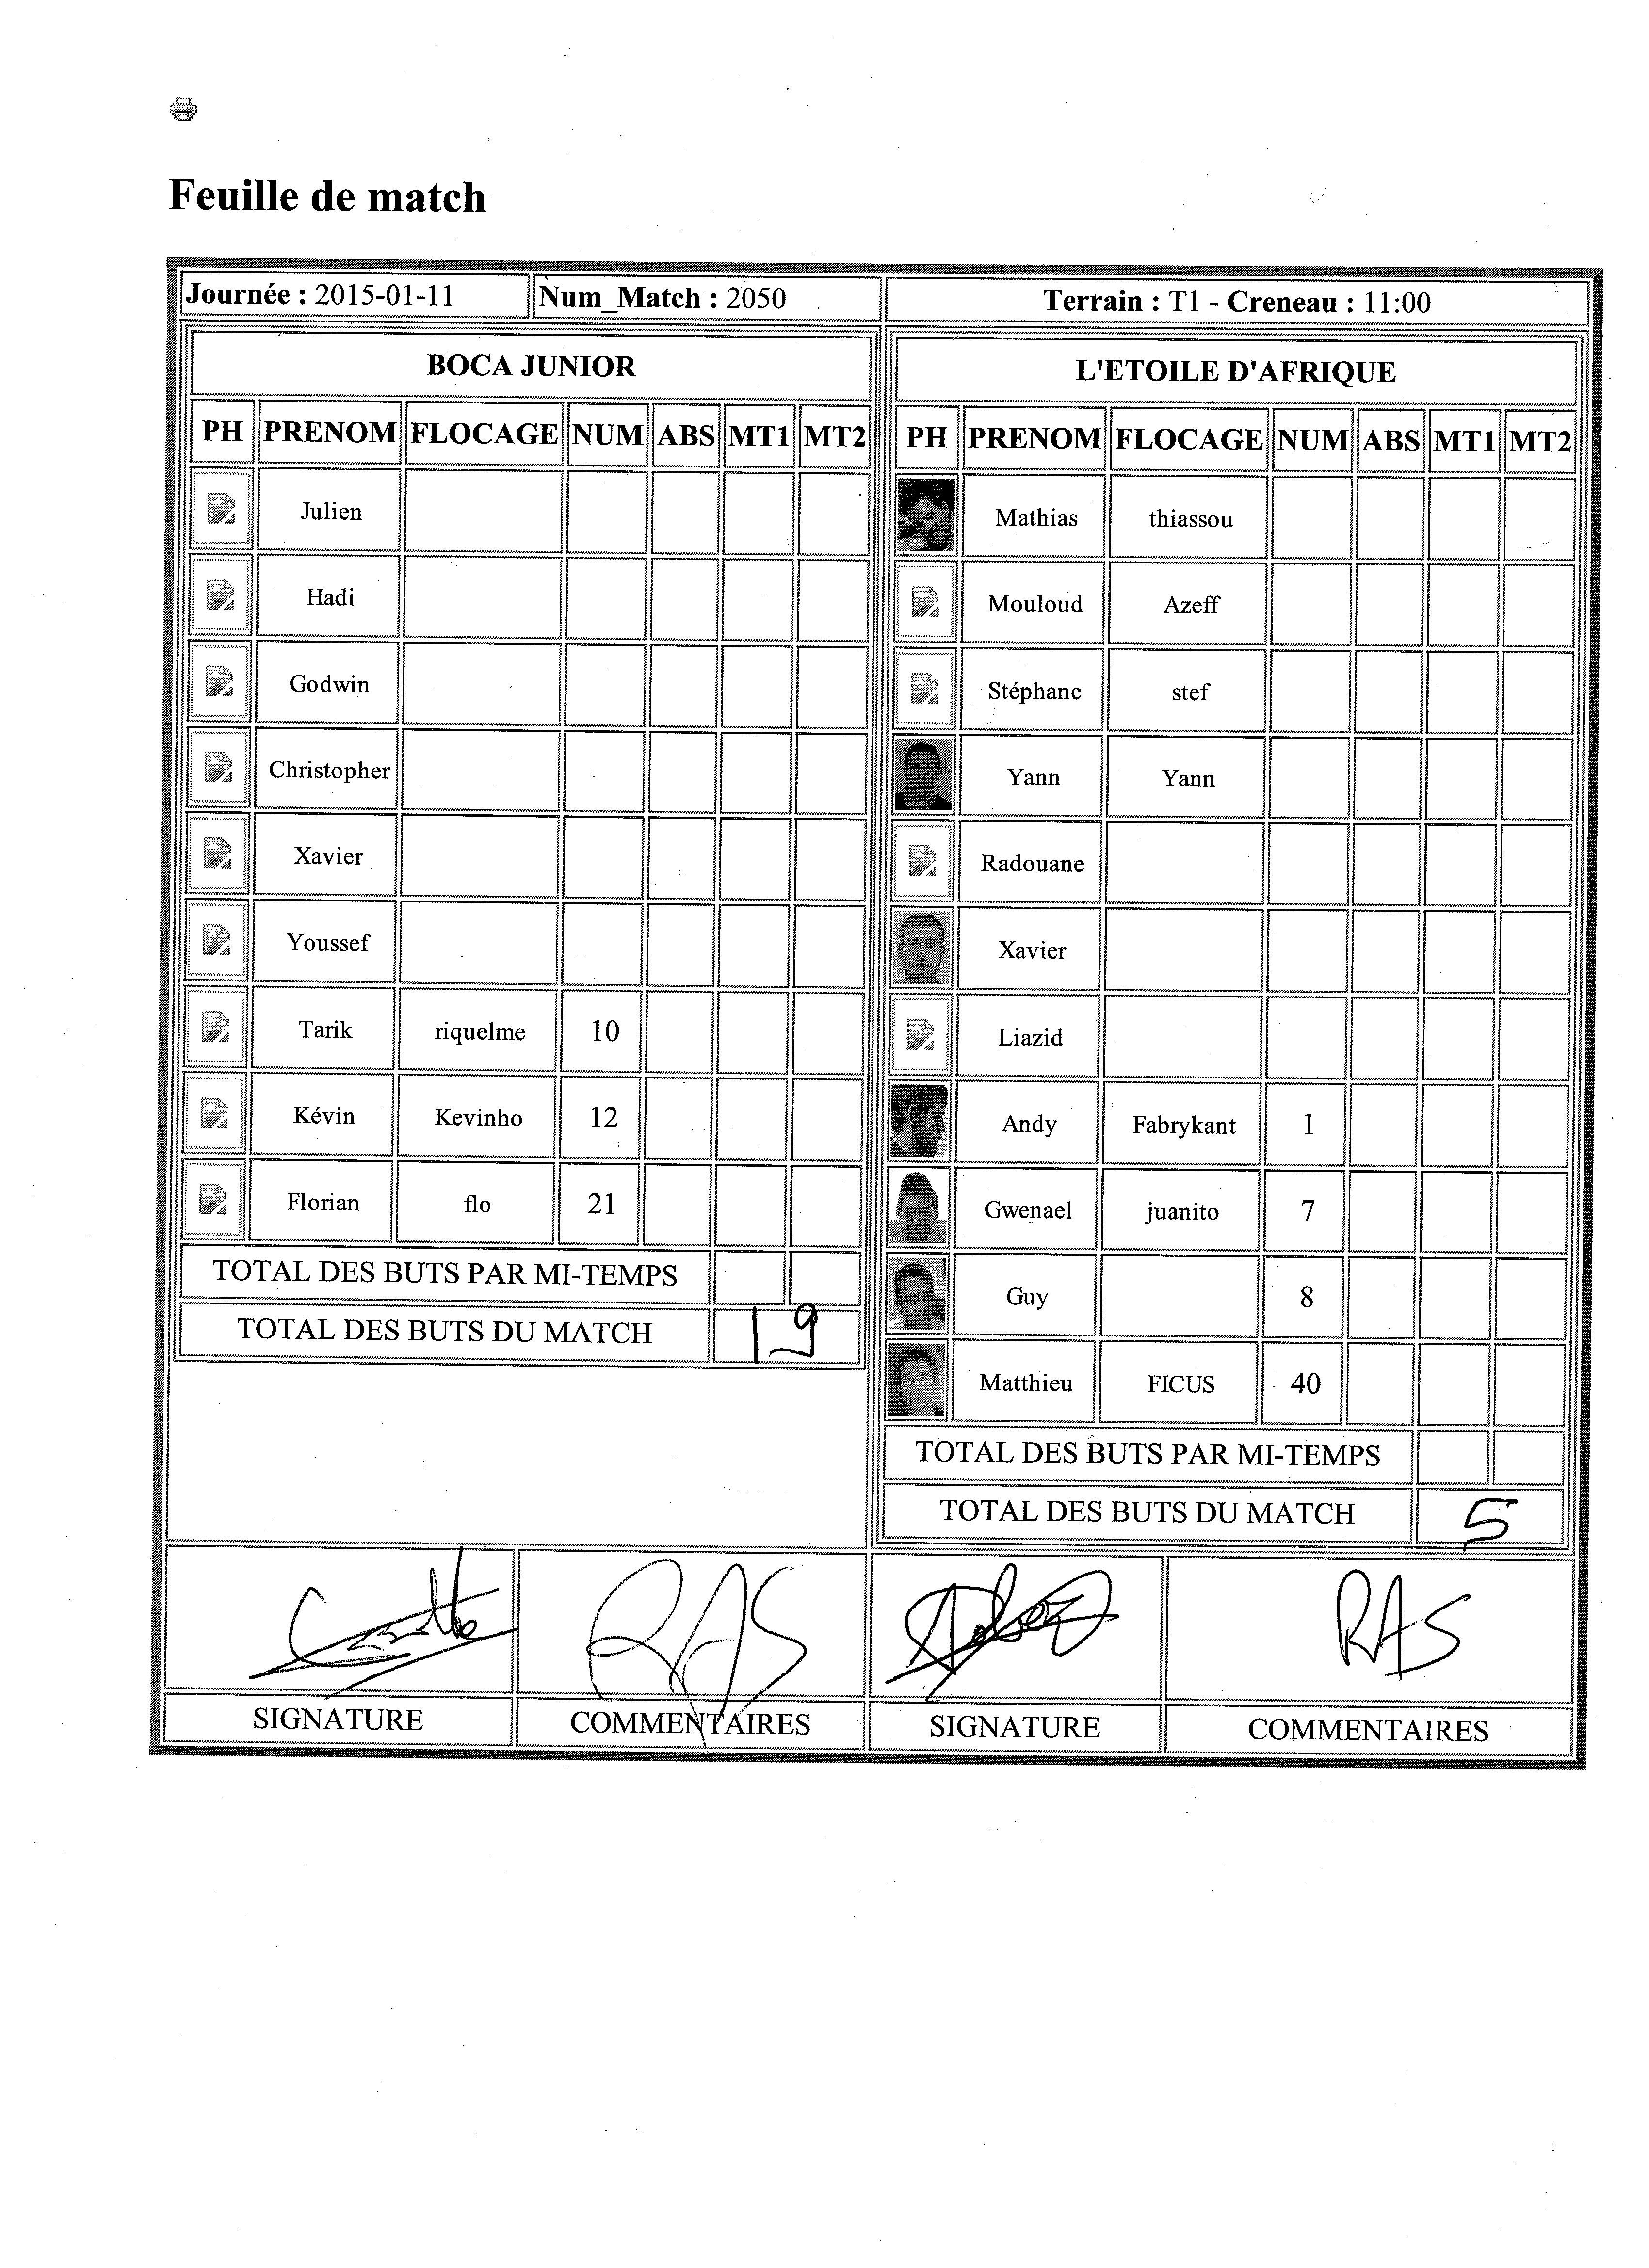 Feuille de match
Journée : 2015-01-11 Num_Match : 2050 Terrain : T1 - Creneau : 11:00
BOCA JUNIOR
PH PRENOM FLOCAGE NUM ABS MT1 MT2
Julien
Hadi
Godwin
Christopher
Xavier
Youssef
Tarik riquelme 10
Kévin Kevinho 12
Florian flo 21
TOTAL DES BUTS PAR MI-TEMPS
TOTAL DES BUTS DU MATCH 19
L'ETOILE D'AFRIQUE
PH PRENOM FLOCAGE NUM ABS MT1 MT2
Mathias thiassou
Mouloud Azeff
Stéphane stef
Yann Yann
Radouane
Xavier
Liazid
Andy Fabrykant 1
Gwenael juanito 7
Guy 8
Matthieu FICUS 40
TOTAL DES BUTS PAR MI-TEMPS
TOTAL DES BUTS DU MATCH 5
RAS RAS
SIGNATURE COMMENTAIRES SIGNATURE COMMENTAIRES